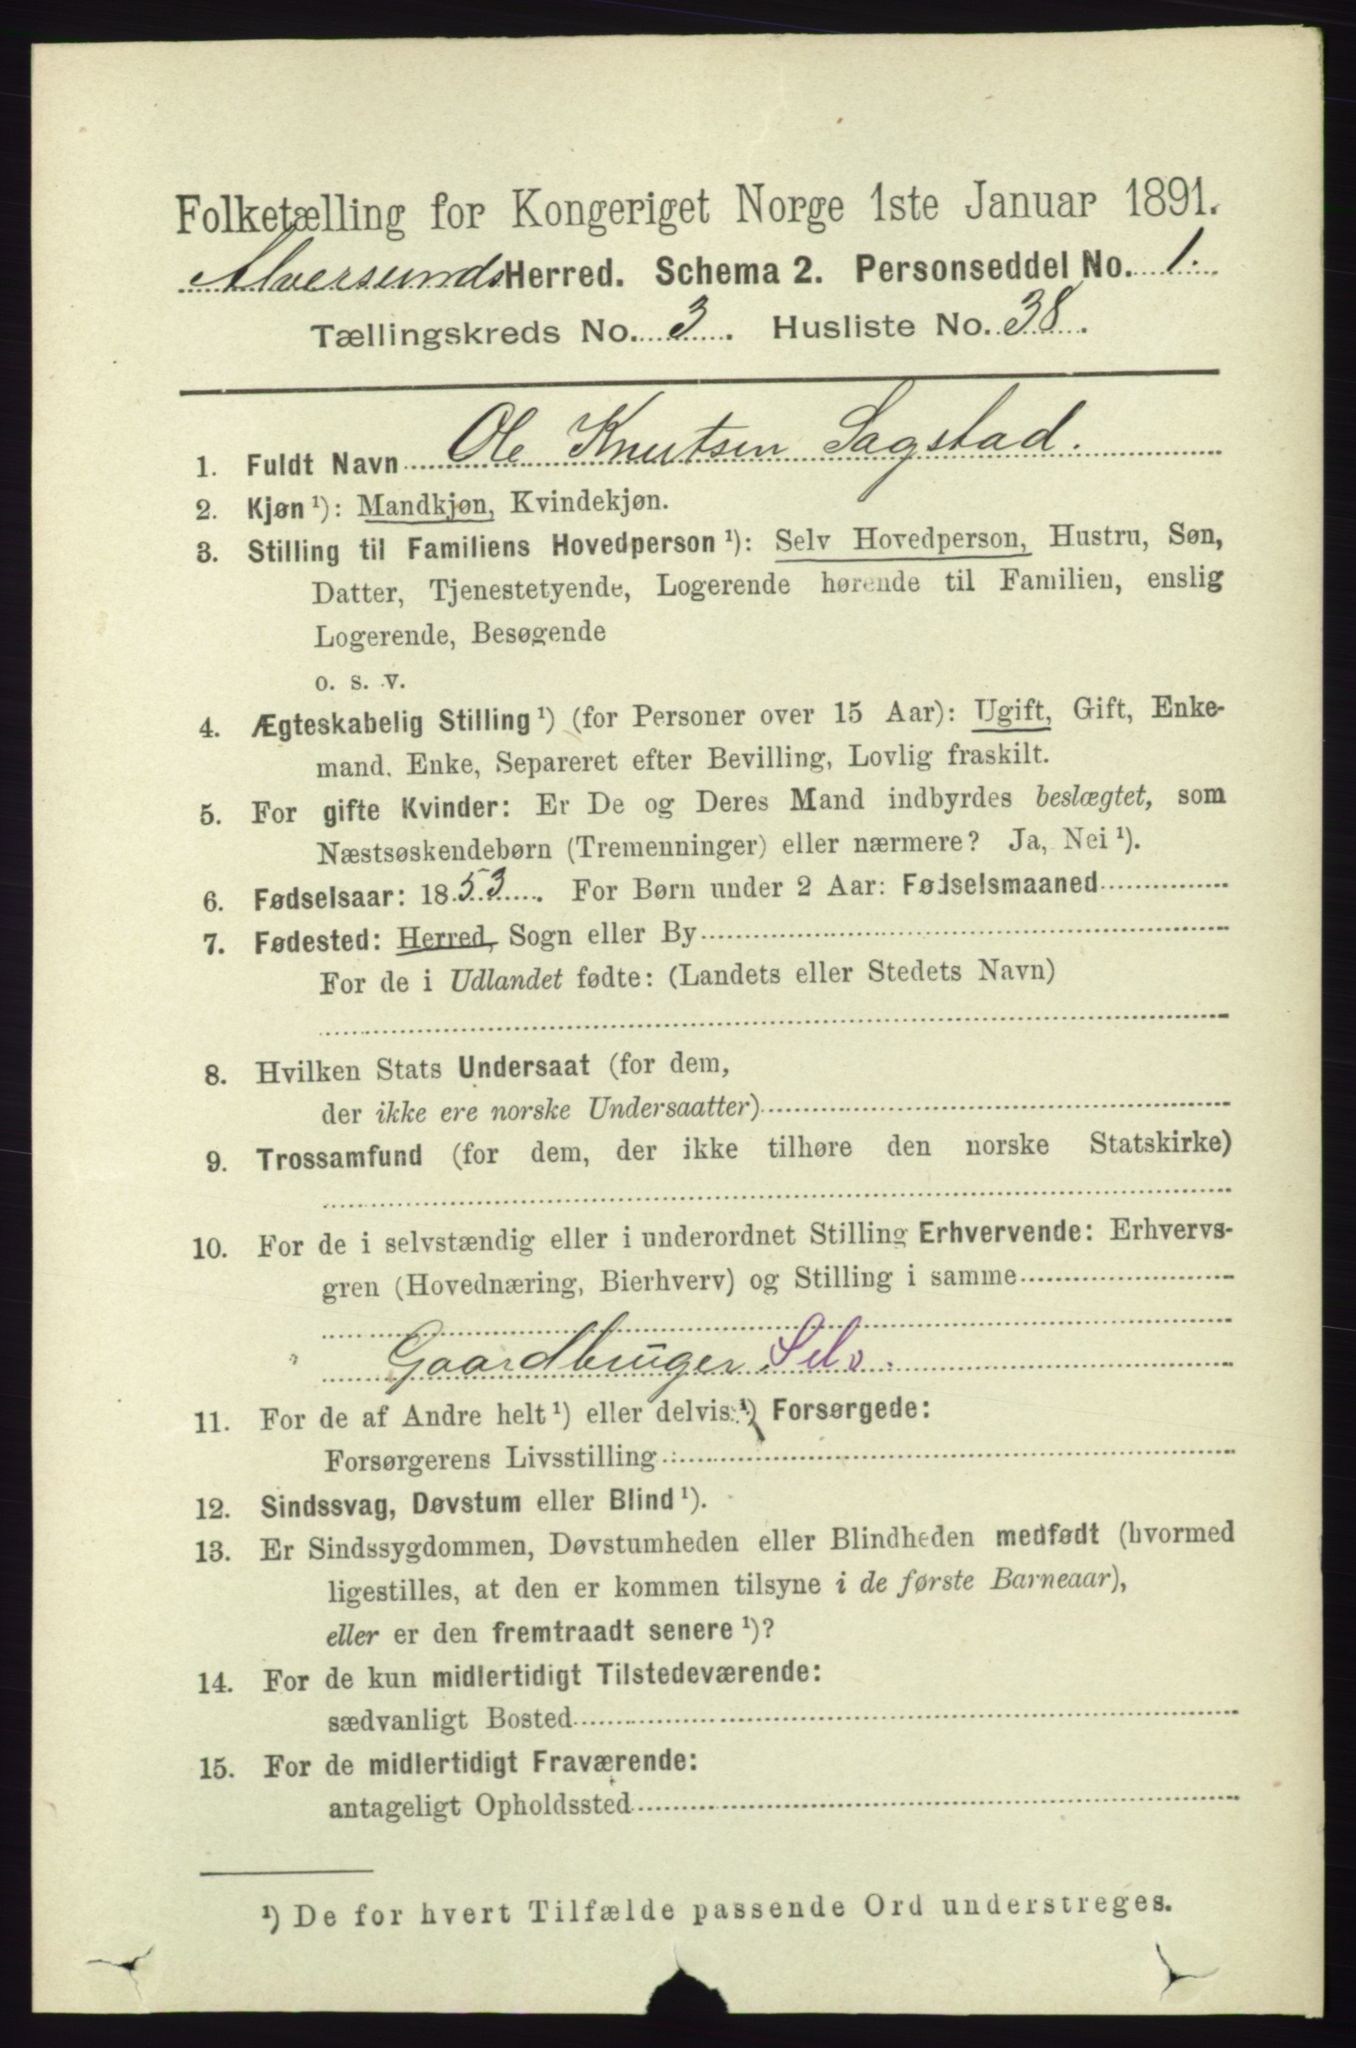 Folketælling for Kongeriget Norge 1ste Januar 1891.
Alversunds Herred. Schema 2. Personseddel No. 1.
Tællingskreds No. 3. Husliste No. 38.
1. Fuldt Navn Ole Knutsen Sagstad.
2. Kjøn ¹): Mandkjøn, Kvindekjøn.
3. Stilling til Familiens Hovedperson ¹): Selv Hovedperson, Hustru, Søn,
Datter, Tjenestetyende, Logerende hørende til Familien, enslig
Logerende, Besøgende
o. s. v.
4. Ægteskabelig Stilling ¹) (for Personer over 15 Aar): Ugift, Gift, Enke-
mand. Enke, Separeret efter Bevilling, Lovlig fraskilt.
5. For gifte Kvinder: Er De og Deres Mand indbyrdes beslægtet, som
Næstsøskendebørn (Tremenninger) eller nærmere? Ja, Nei ¹).
6. Fødselsaar: 1853. For Børn under 2 Aar: Fødselsmaaned
7. Fødested: Herred, Sogn eller By
For de i Udlandet fødte: (Landets eller Stedets Navn)
8. Hvilken Stats Undersaat (for dem,
der ikke ere norske Undersaatter)
9. Trossamfund (for dem, der ikke tilhøre den norske Statskirke)
10. For de i selvstændig eller i underordnet Stilling Erhvervende: Erhvervs-
gren (Hovednæring, Bierhverv) og Stilling i samme
Gaardbruger Selv.
11. For de af Andre helt ¹) eller delvis ¹) Forsørgede:
Forsørgerens Livsstilling
12. Sindssvag, Døvstum eller Blind ¹).
13. Er Sindssygdommen, Døvstumheden eller Blindheden medfødt (hvormed
ligestilles, at den er kommen tilsyne i de første Barneaar),
eller er den fremtraadt senere ¹)?
14. For de kun midlertidigt Tilstedeværende:
sædvanligt Bosted
15. For de midlertidigt Fraværende:
antageligt Opholdssted
¹) De for hvert Tilfælde passende Ord understreges.